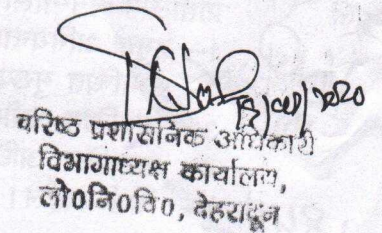 वरिष्ठ प्रशासनिक अधिकारी
विभागाध्यक्ष कार्यालय,
लो0नि0वि0, देहरादून